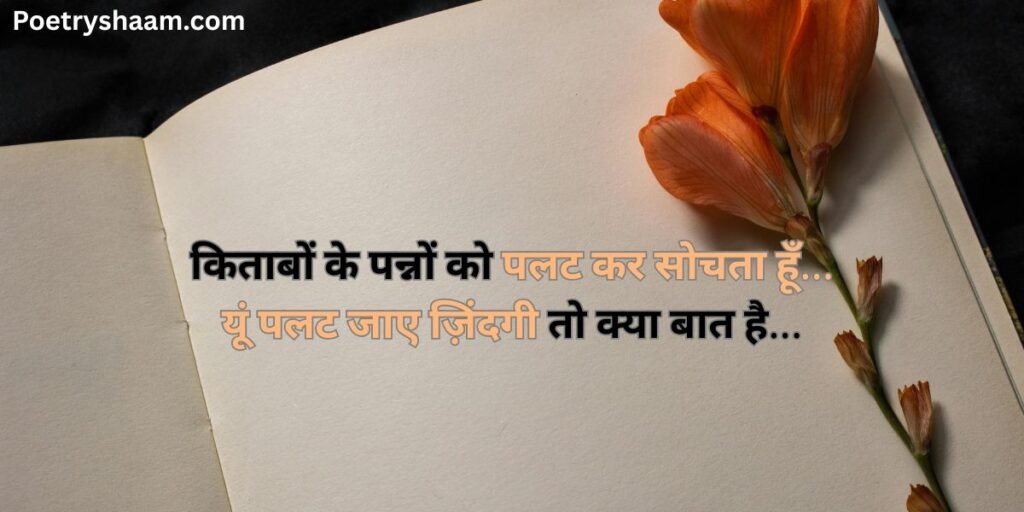 Poetryshaam.com
किताबों के पन्नों को पलट कर सोचता हूँ...
यूं पलट जाए ज़िंदगी तो क्या बात है...